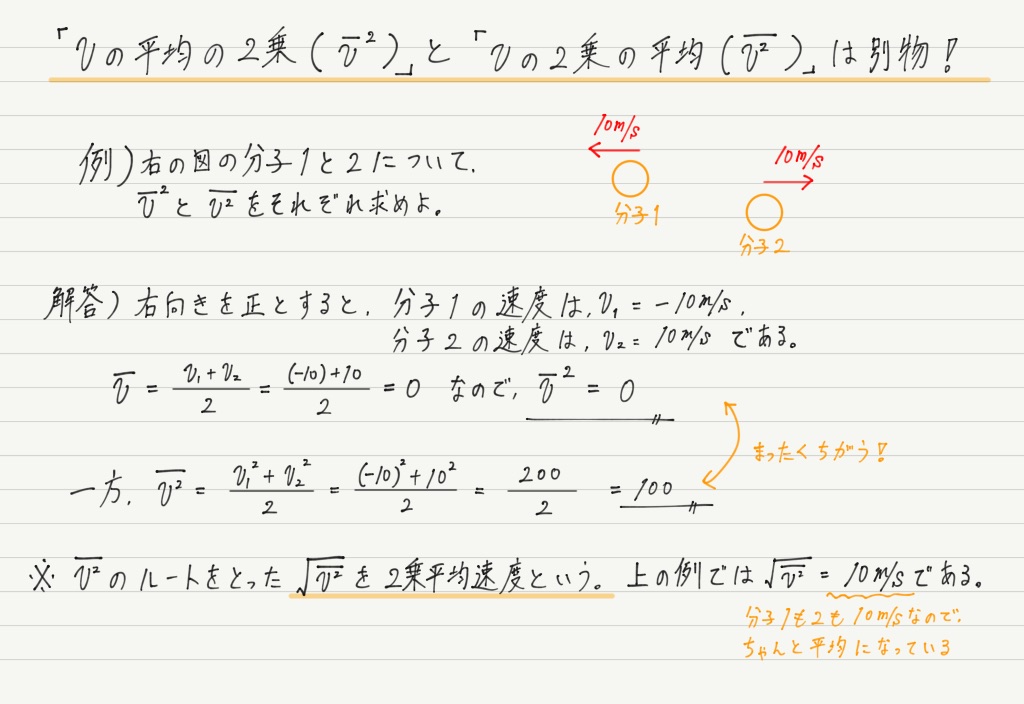 「vの平均の2乗(v̅²)」と「vの2乗の平均(\overline{v²})」は別物!
例)右の図の分子1と2について、
v̅²と\overline{v²}をそれぞれ求めよ。
10m/s
分子1
10m/s
分子2
解答)右向きを正とすると、分子1の速度は、v₁ = -10m/s、
分子2の速度は、v₂ = 10m/s である。
v̅ = \frac{v₁+v₂}{2} = \frac{(-10)+10}{2} = 0 なので、v̅² = 0
まったくちがう!
一方、\overline{v²} = \frac{v₁²+v₂²}{2} = \frac{(-10)²+10²}{2} = \frac{200}{2} = 100
※ \overline{v²}のルートをとった\sqrt{\overline{v²}}を2乗平均速度という。上の例では\sqrt{\overline{v²}} = 10m/sである。
分子1も2も10m/sなので、
ちゃんと平均になっている